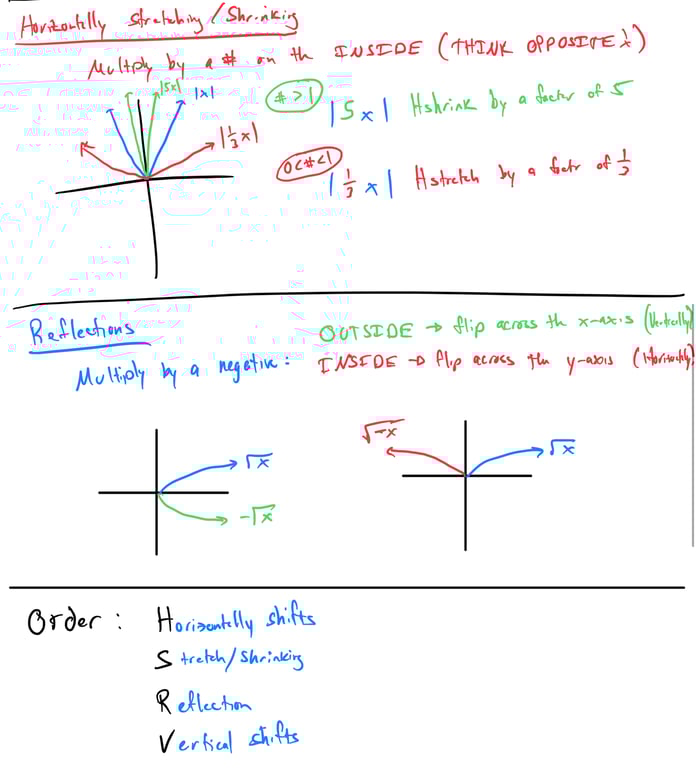 Horizontally Stretching/Shrinking
Multiply by a # on the INSIDE (THINK OPPOSITE!)
|5x| |x| |1/3 x|
#>1 |5x| Hshrink by a factor of 5
0<#<1 |1/3 x| Hstretch by a factr of 1/3
Reflections
OUTSIDE → flip across the x-axis (Vertically)
Multiply by a negative: INSIDE → flip across the y-axis (Horizontally)
√x
-√x
√-x
√x
Order: Horizontally shifts
Stretch/Shrinking
Reflection
Vertical shifts